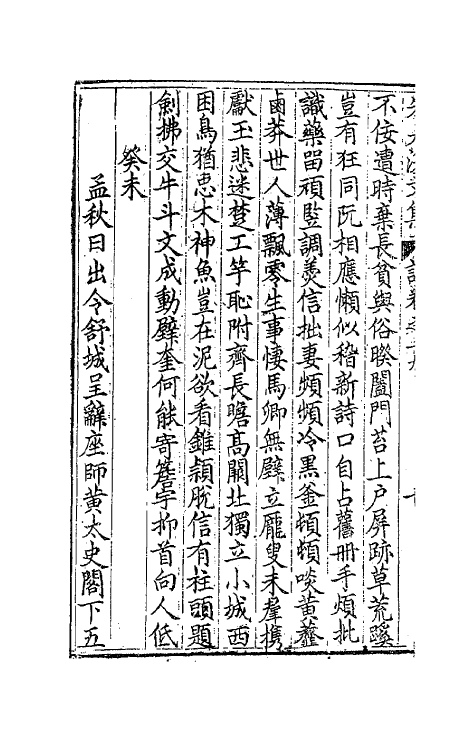 不佞遭時棄長貧與俗睽闔門苔上户屏跡草荒蹊
豈有狂同阮相應懶似稽新詩口自占舊冊手煩批
識藥畱頑豎調羹信拙妻頻頻冷黑釜頓頓啖黃虀
鹵莽世人薄飄零生事悽馬卿無壁立龐叟未羣攜
獻玉悲迷楚工竽恥附齊長瞻高闕北獨立小城西
困鳥猶思木神魚豈在泥欲看錐頴脫信有柱頭題
劍拂交牛斗文成動壁奎何能寄簷宇抑首向人低
癸未
孟秋日出令舒城呈辭座師黄太史閣下五